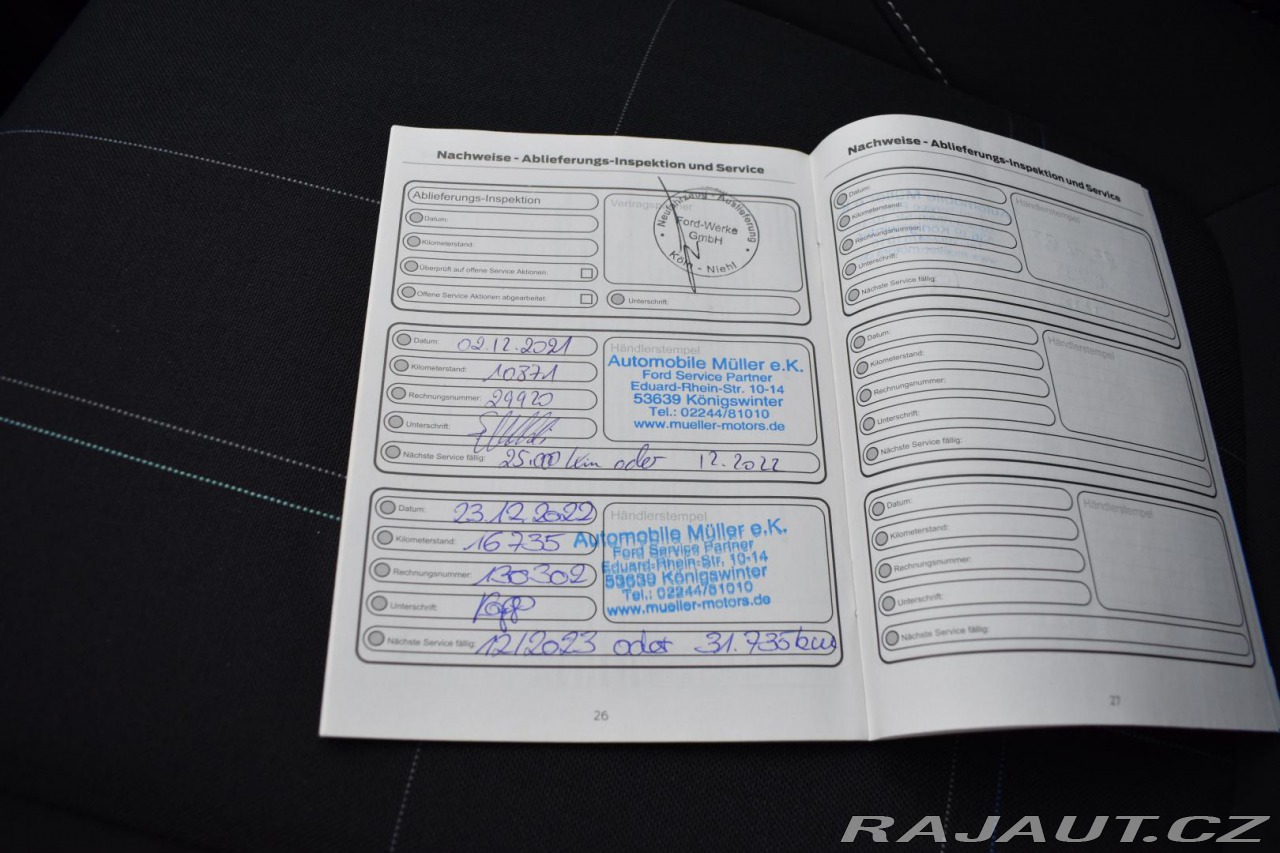 Nachweise - Ablieferungs-Inspektion und Service
Ablieferungs-Inspektion
Datum:
Kilometerstand:
Überprüft auf offene Service Aktionen:
Offene Service Aktionen abgearbeitet:
Neufahrzeug - Auslieferung
Ford-Werke
GmbH
Köln - Niehl
Unterschrift:
Datum: 02.12.2021
Kilometerstand: 10871
Rechnungsnummer: 29920
Unterschrift:
Nächste Service fällig: 25.000 km oder 12.2022
Händlerstempel
Automobile Müller e.K.
Ford Service Partner
Eduard-Rhein-Str. 10-14
53639 Königswinter
Tel.: 02244/81010
www.mueller-motors.de
Datum: 23.12.2022
Kilometerstand: 16735
Rechnungsnummer: 130302
Unterschrift:
Nächste Service fällig: 12/2023 oder 31.735 km
Händlerstempel
Automobile Müller e.K.
Ford Service Partner
Eduard-Rhein-Str. 10-14
53639 Königswinter
Tel.: 02244/81010
www.mueller-motors.de
26
Nachweise - Ablieferungs-Inspektion und Service
Datum:
Kilometerstand:
Rechnungsnummer:
Unterschrift:
Nächste Service fällig:
Händlerstempel
Datum:
Kilometerstand:
Rechnungsnummer:
Unterschrift:
Nächste Service fällig:
Händlerstempel
Datum:
Kilometerstand:
Rechnungsnummer:
Unterschrift:
Nächste Service fällig:
Händlerstempel
27
RAJAUT.CZ